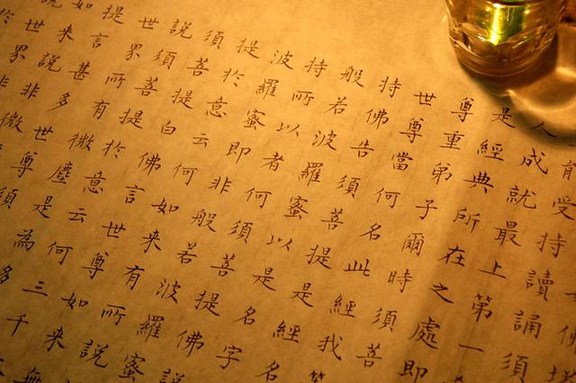 受持讀誦
人成就最上第一
是經典所在之處即
尊重弟子爾時須菩
世尊當何名此經我
持佛告須菩提是經名
般若波羅蜜以是名字
持所以者何須菩提佛
波羅蜜即非般若波羅蜜
提於意云何如來有所說
須菩提白佛言世尊如來
說須菩提於意云何三千
世界所有微塵是為多
提言甚多世尊須
如來說非微
於世界